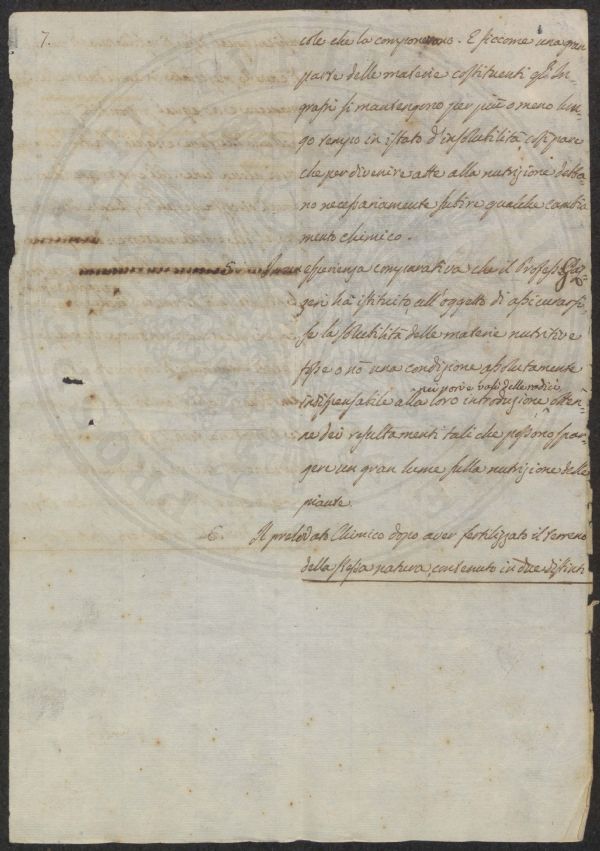 7.
cole che la componevano. E siccome una gran
parte delle materie costituenti gl'In-
grassi si mantengono per più o meno lun-
go tempo in istato d'insolubilità, così pare
che per divenire atte alla nutrizione deb̃a-
no necessariamente subire qualche cambia
mento chimico.
5. In un esperienza comparativa che il Profess.
zeri ha istituito, all'oggetto di assicurarsi
se la solubilità delle materie nutritive
fosse o nõ una condizione absolutamente
nei pori e vasi delle radici
indispensabile alla loro introduzione otten-
ne dei resultamenti tali che possono spar-
gere un gran lume sulla nutrizione delle
piante.
6. Il prelodato Chimico dopo aver fertilizzato il terreno
della stessa natura, contenuto in due distinti